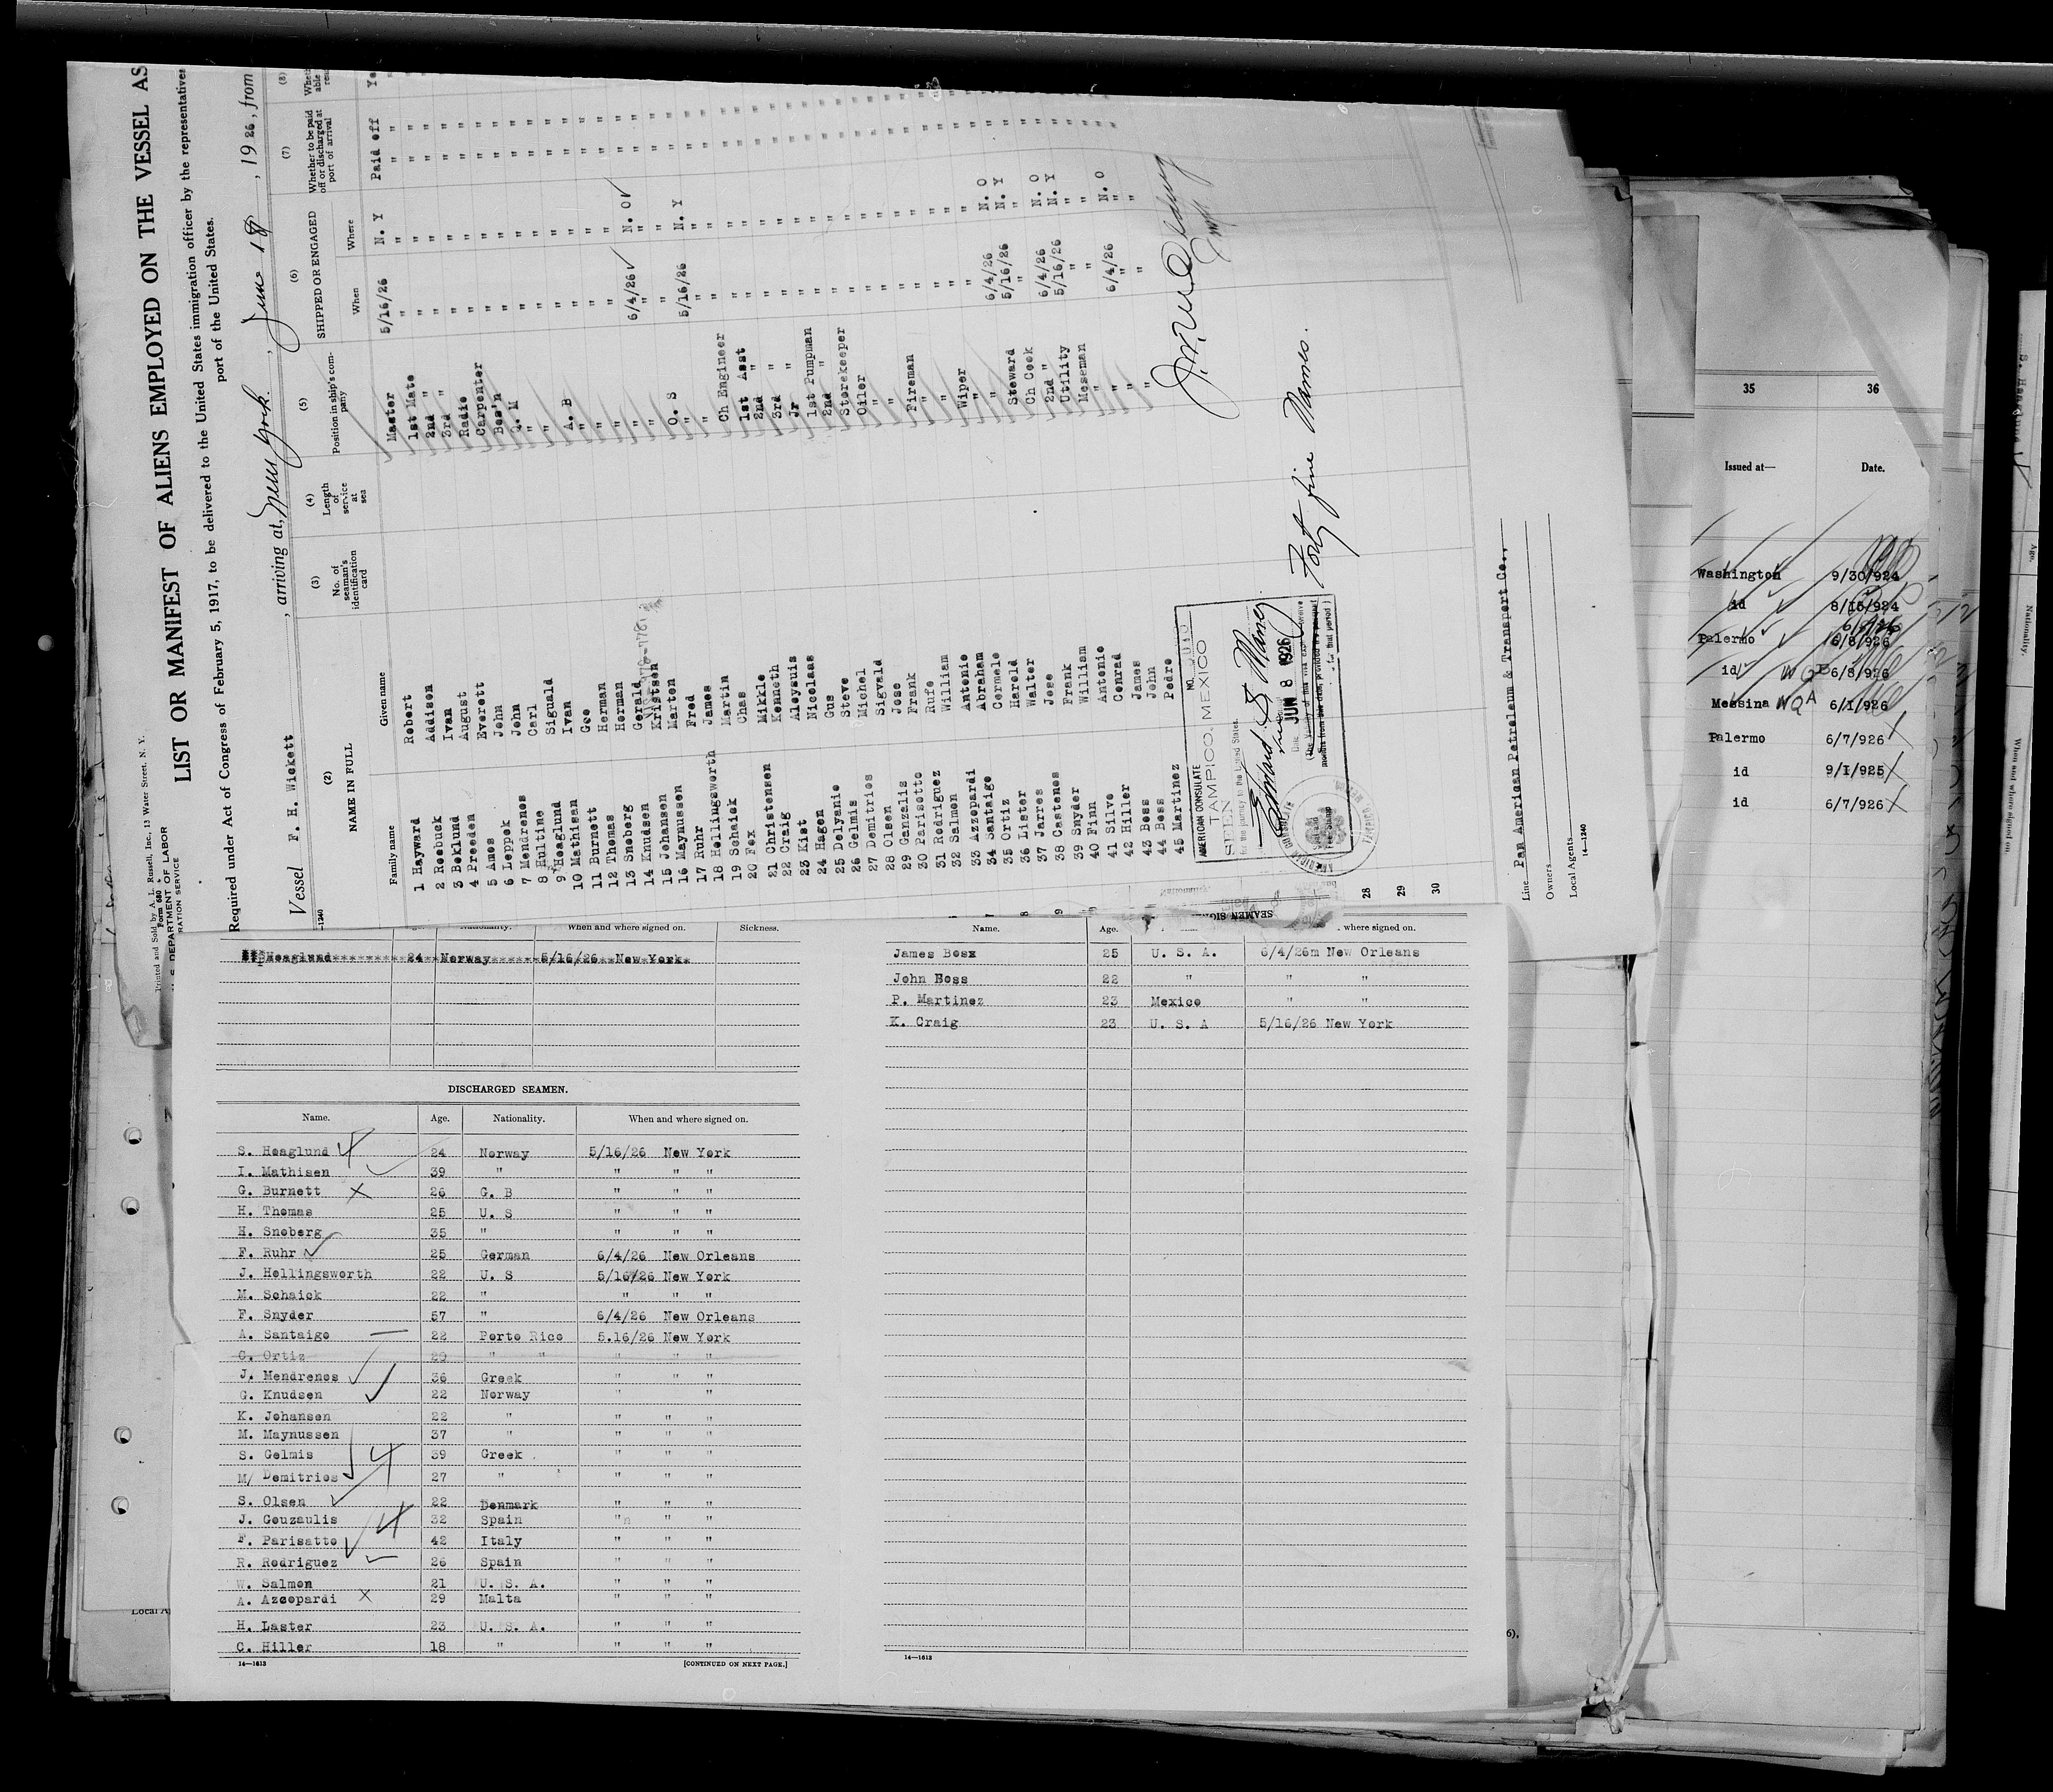 Printed and Sold by A. L. Russell, Inc., 13 Water Street, N. Y.
Form 680
U. S. DEPARTMENT OF LABOR
RATION SERVICE
LIST OR MANIFEST OF ALIENS EMPLOYED ON THE VESSEL AS
Required under Act of Congress of February 5, 1917, to be delivered to the United States immigration officer by the representatives
port of the United States.
Vessel F. H. Wickett, arriving at, New York, June 18, 1926, from
(2) (3) (4) (5) (6) (7) (8)
NAME IN FULL No. of seaman's identification card Length of service at sea Position in ship's company SHIPPED OR ENGAGED Whether to be paid off or discharged at port of arrival
Family name Given name When Where
1 Hayward Robert Master 5/16/26 N. Y Paid off Ye
2 Roebuck Addison 1st Mate " " "
3 Boklund Ivan 2nd " " " "
4 Preeden August 3rd " " " "
5 Amos Everett Radio " " "
6 Leppek John Carpenter " " "
7 Mendrenos John Bos'n " " "
8 Hultine Carl Q. M " " "
9 Hoaglund Siguald " " " "
10 Mathisan Ivan " " " "
11 Burnett Geo A. B " " "
12 Thomas Herman " " " "
13 Sneberg Herman " " " "
14 Knudsen Gerald " " " "
15 Johansen Kristsen " 6/4/26 N. O "
16 Maynussen Marton " " " "
17 Ruhr Fred O. S " " "
18 Hollingsworth James " 5/16/26 N. Y "
19 Schaick Martin " " " "
20 Fox Chas Ch Engineer " " "
21 Christensen Mikkle 1st Asst " " "
22 Craig Kenneth 2nd " " " "
23 Kist Aloysuis 3rd " " " "
24 Hagen Nicolaas Jr " " " "
25 Delyanie Gus 1st Pumpman " " "
26 Gelmis Steve 2nd " " " "
27 Demitries Michel Storekeeper " " "
28 Olsen Sigvald Oiler " " "
29 Ganzalis Jose " " " "
30 Parisotto Frank " " " "
31 Rodriguez Rufo Fireman " " "
32 Salmon William " " " "
33 Azzopardi Antonio " " " "
34 Santaige Abraham Wiper " " "
35 Ortiz Cormelo " " " "
36 Lister Harold " 6/4/26 N. O "
37 Jarres Walter Steward 5/16/26 N. Y "
38 Castenos Jose Ch Cook " " "
39 Snyder Frank 2nd " 6/4/26 N. O "
40 Finn William Utility 5/16/26 N. Y "
41 Silva Antonio Mesman " " "
42 Hiller Conrad " " " "
43 Boss James " 6/4/26 N. O
44 Boss John " " "
45 Martinez Pedro " " "
AMERICAN CONSULATE
TAMPICO, MEXICO
SEEN
for the journey to the United States.
JUN 8 1926
Forty five Names.
28
29
30
Line Pan American Petroleum & Transport Co.,
Owners
Local Agents
14—1240
Nationality. When and where signed on. Sickness.
Hoaglund 24 Norway 5/16/26 New York
DISCHARGED SEAMEN.
Name. Age. Nationality. When and where signed on.
S. Hoaglund 24 Norway 5/16/26 New York
I. Mathisen 39 " " " "
G. Burnett 26 G. B " " "
H. Thomas 25 U. S " " "
H. Sneberg 35 " " " "
F. Ruhr 25 German 6/4/26 New Orleans
J. Hollingsworth 22 U. S 5/16/26 New York
M. Schaick 22 " " " "
F. Snyder 57 " 6/4/26 New Orleans
A. Santaige 22 Porto Rico 5.16/26 New York
C. Ortiz 20 " " " " "
J. Mendrenos 36 Greek " " "
G. Knudsen 22 Norway " "
K. Johansen 22 " " " "
M. Maynussen 37 " " " "
S. Gelmis 39 Greek " " "
M/ Demitries 27 " " " "
S. Olsen 22 Denmark " " "
J. Gouzaulis 32 Spain " " "
F. Parisatto 42 Italy " " "
R. Rodriguez 26 Spain " " "
W. Salmon 21 U. S. A. " " "
A. Azzopardi 29 Malta " " "
H. Laster 23 U. S. A. " " "
C. Hiller 18 " " " "
14—1613
[CONTINUED ON NEXT PAGE.]
Name. Age. where signed on.
James Boss 25 U. S. A. 6/4/26m New Orleans
John Boss 22 " " "
P. Martinez 23 Mexico " "
K. Craig 23 U. S. A 5/16/26 New York
14—1613
35 36
Issued at— Date.
Washington 9/30/924
id 8/15/924
Palermo 6/8/926
id 6/8/926
Messina 6/1/926
Palermo 6/7/926
id 9/1/925
id 6/7/926